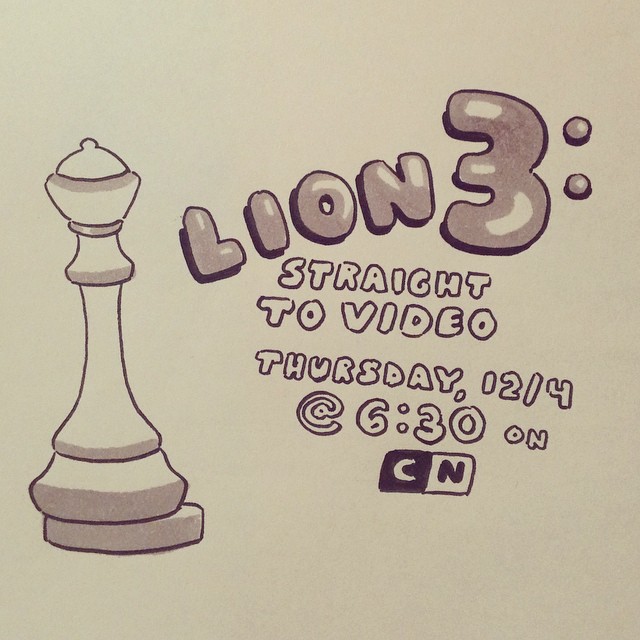 LION 3:
STRAIGHT
TO VIDEO
THURSDAY, 12/4
@ 6:30 ON
CN